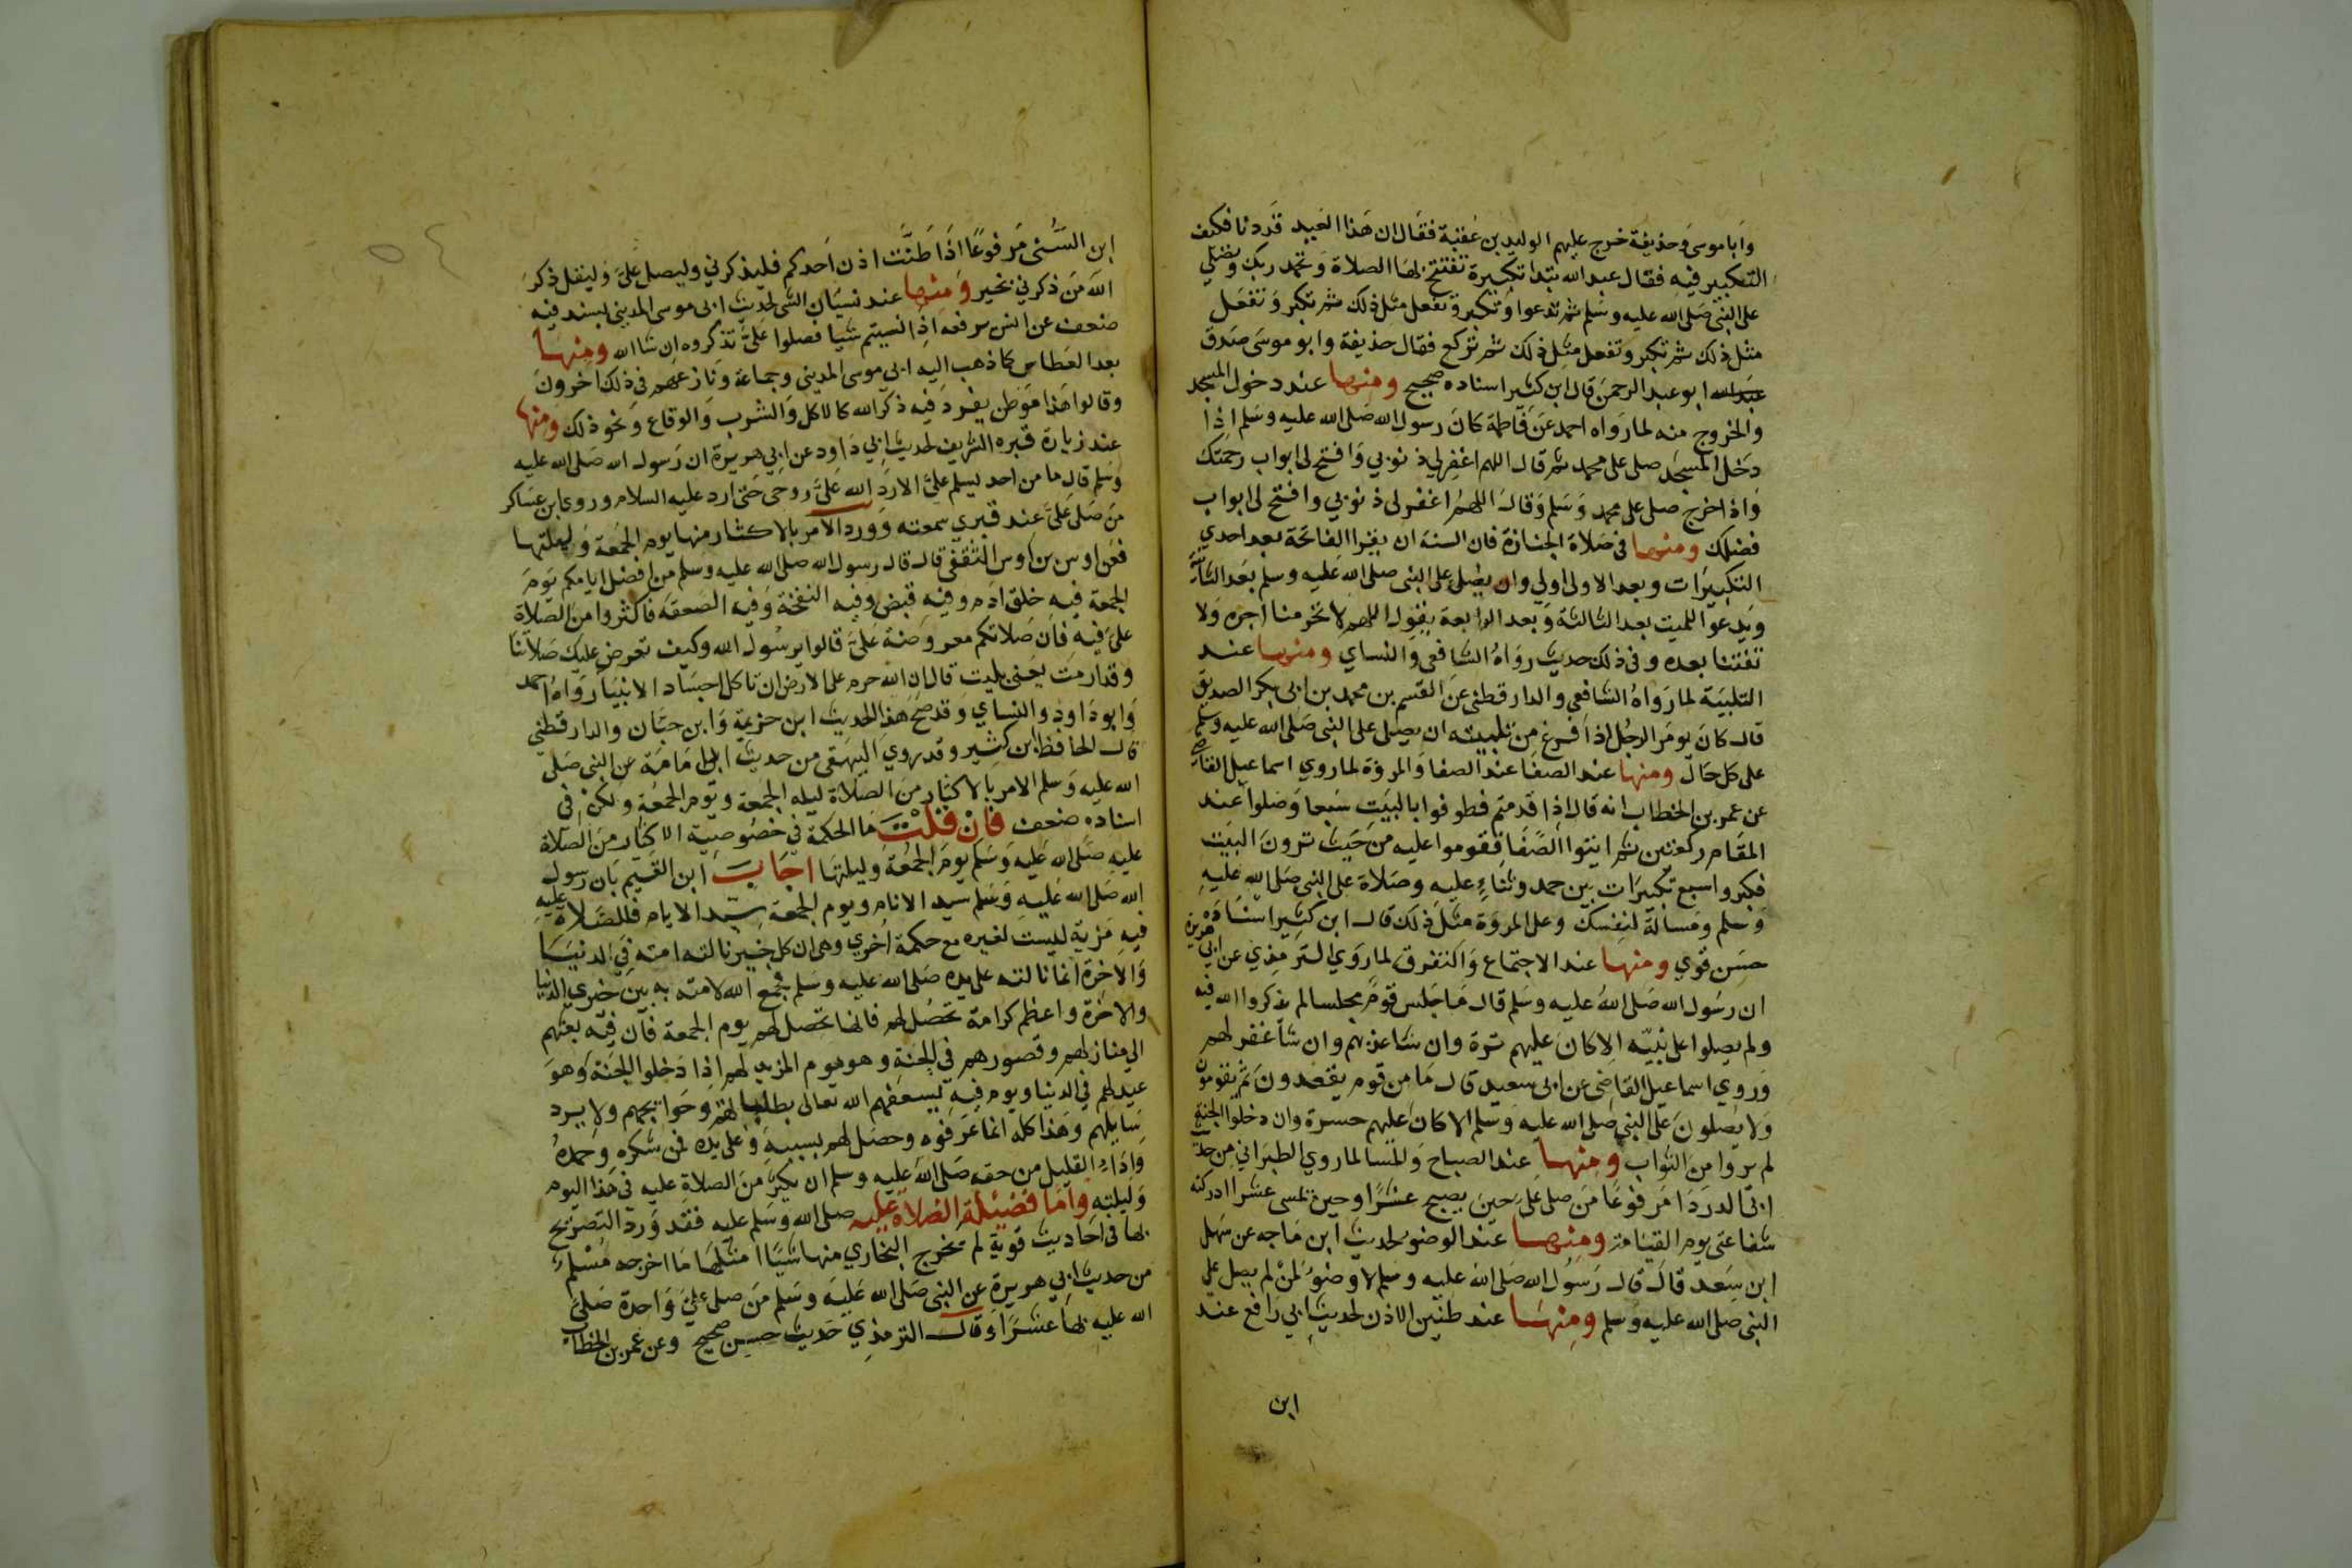 وابا موسى وحذيفة خرج عليهم الوليد بن عقبة فقال ان هذا العيد قد دنا فكيف
التكبير فيه فقال عبد الله تبتدا تكبيرة تفتتح بها الصلاة وتحمد ربك وتصلي
على النبي صلى الله عليه وسلم ثم تدعوا وتكبر وتفعل مثل ذلك ثم تكبر وتفعل
مثل ذلك ثم تكبر وتفعل مثل ذلك ثم تركع فقال حذيفة وابو موسى صدق
ابو عبد الرحمن قال ابن كثير اسناده صحيح ومنها عند دخول المسجد
والخروج منه لما رواه احمد عن فاطمة كان رسول الله صلى الله عليه وسلم اذا
دخل المسجد صلى على محمد ثم قال اللهم اغفر لي ذنوبي وافتح لي ابواب رحمتك
واذا خرج صلى على محمد وسلم وقال اللهم اغفر لي ذنوبي وافتح لي ابواب
فضلك ومنها في صلاة الجنازة فان السنة ان يقرا الفاتحة بعد احدي
التكبيرات وبعد الاولى اولي وان يصلي على النبي صلى الله عليه وسلم بعد الثانية
ويدعوا للميت بعد الثالثة وبعد الرابعة يقول اللهم لا تحرمنا اجره ولا
تفتنا بعده وفي ذلك حديث رواه الشافعي والنساي ومنها عند
التلبية لما رواه الشافعي والدارقطني عن القسم بن محمد بن ابي بكر الصديق
قال كان يومر الرجل اذا فرغ من تلبيته ان يصلي على النبي صلى الله عليه وسلم
على كل حال ومنها عند الصفا عند الصفا والمروة لما روي اسماعيل القاضي
عن عمر بن الخطاب انه قال اذا قدمتم فطوفوا بالبيت سبعا وصلوا عند
المقام ركعتين ثم ايتوا الصفا فقوموا عليه من حيث ترون البيت
فكبروا سبع تكبيرات بين حمد وثناء عليه وصلاة على النبي صلى الله عليه
وسلم ومسالة لنفسك وعلى المروة مثل ذلك قال ابن كثير اسناده
حسن قوي ومنها عند الاجتماع والتفرق لما روي الترمذي عن ابي هريرة
ان رسول الله صلى الله عليه وسلم قال ما جلس قوم مجلسا لم يذكروا الله فيه
ولم يصلوا على نبيه الا كان عليهم ترة وان شا عذبهم وان شا غفر لهم
وروي اسماعيل القاضي عن ابي سعيد قال ما من قوم يقعدون ثم يقومون
ولا يصلون على النبي صلى الله عليه وسلم الا كان عليهم حسرة وان دخلوا الجنة
لم يروا من الثواب ومنها عند الصباح والمسا لما روي الطبراني من حديث
ابي الدردا مرفوعا من صلى علي حين يصبح عشرا وحين تمسي عشرا ادركته
شفاعتي يوم القيامة ومنها عند الوضو لحديث ابن ماجه عن سهل
ابن سعد قال قال رسول الله صلى الله عليه وسلم لا وضو لمن لم يصل على
النبي صلى الله عليه وسلم ومنها عند طنين الاذن لحديث ابي رافع عند
ابن
ابن السني مرفوعا اذا طنت اذن احدكم فليذكرني وليصل علي وليقل ذكر
الله من ذكرني بخير ومنها عند نسيان الشي لحديث ابي موسى المديني بسند فيه
ضعف عن انس يرفعه اذا نسيتم شيا فصلوا علي تذكروه ان شا الله ومنها
بعد العطاس كما ذهب اليه ابي موسى المديني وجماعة ونازعهم في ذلك اخرون
وقالوا هذا موطن يفرد فيه ذكر الله كالاكل والشرب والوقاع ونحو ذلك ومنها
عند زيارة قبره الشريف لحديث ابي داود عن ابي هريرة ان رسول الله صلى الله عليه
وسلم قال ما من احد يسلم علي الا رد الله علي روحي حتى ارد عليه السلام وروى ابن عساكر
من صلى علي عند قبري سمعته وورد الامر بالاكثار منها يوم الجمعة وليلتها
فعن اوس بن اوس الثقفي قال قال رسول الله صلى الله عليه وسلم من افضل ايامكم يوم
الجمعة فيه خلق ادم وفيه قبض وفيه النفخة وفيه الصعقة فاكثروا من الصلاة
على فيه فان صلاتكم معروضة علي قالوا يرسول الله وكيف تعرض عليك صلاتنا
وقد ارمت يعني بليت قال ان الله حرم على الارض ان تاكل اجساد الانبيا رواه احمد
وابو داود والنساي وقد صحح هذا الحديث ابن خزيمة وابن حبان والدارقطني
قال الحافظ ابن كثير وقد روي البيهقي من حديث ابي امامة عن النبي صلى
الله عليه وسلم الامر بالاكثار من الصلاة ليلة الجمعة ويوم الجمعة ولكن في
اسناده ضعف فان قلت ما الحكمة في خصوصية الاكثار من الصلاة
عليه صلى الله عليه وسلم يوم الجمعة وليلتها اجاب ابن القيم بان رسول
الله صلى الله عليه وسلم سيد الانام ويوم الجمعة سيد الايام فللصلاة عليه
فيه مزية ليست لغيره مع حكمة اخري وهي ان كل خير نالته امته في الدنيا
والاخرة انما نالته على يده صلى الله عليه وسلم فجمع الله لامته به بين خيري الدنيا
والاخرة واعظم كرامة تحصل لهم فانها تحصل لهم يوم الجمعة فان فيه بعثهم
الي منازلهم وقصورهم في الجنة وهو يوم المزيد لهم اذا دخلوا الجنة وهو
عيد لهم في الدنيا ويوم فيه يسعفهم الله تعالى بطلباتهم وحوايجهم ولا يرد
سايلهم وهذا كله انما عرفوه وحصل لهم بسببه وعلى يده فمن شكره وحمده
واداء القليل من حقه صلى الله عليه وسلم ان يكثر من الصلاة عليه في هذا اليوم
وليلته واما فضيلة الصلاة عليه صلى الله وسلم عليه فقد ورد التصريح
بها في احاديث قوية لم يخرج البخاري منها شيا امثلها ما اخرجه مسلم
من حديث ابي هريرة عن النبي صلى الله عليه وسلم من صلى علي واحدة صلى
الله عليه بها عشرا وقال الترمذي حديث حسن صحيح وعن عمر بن الخطاب